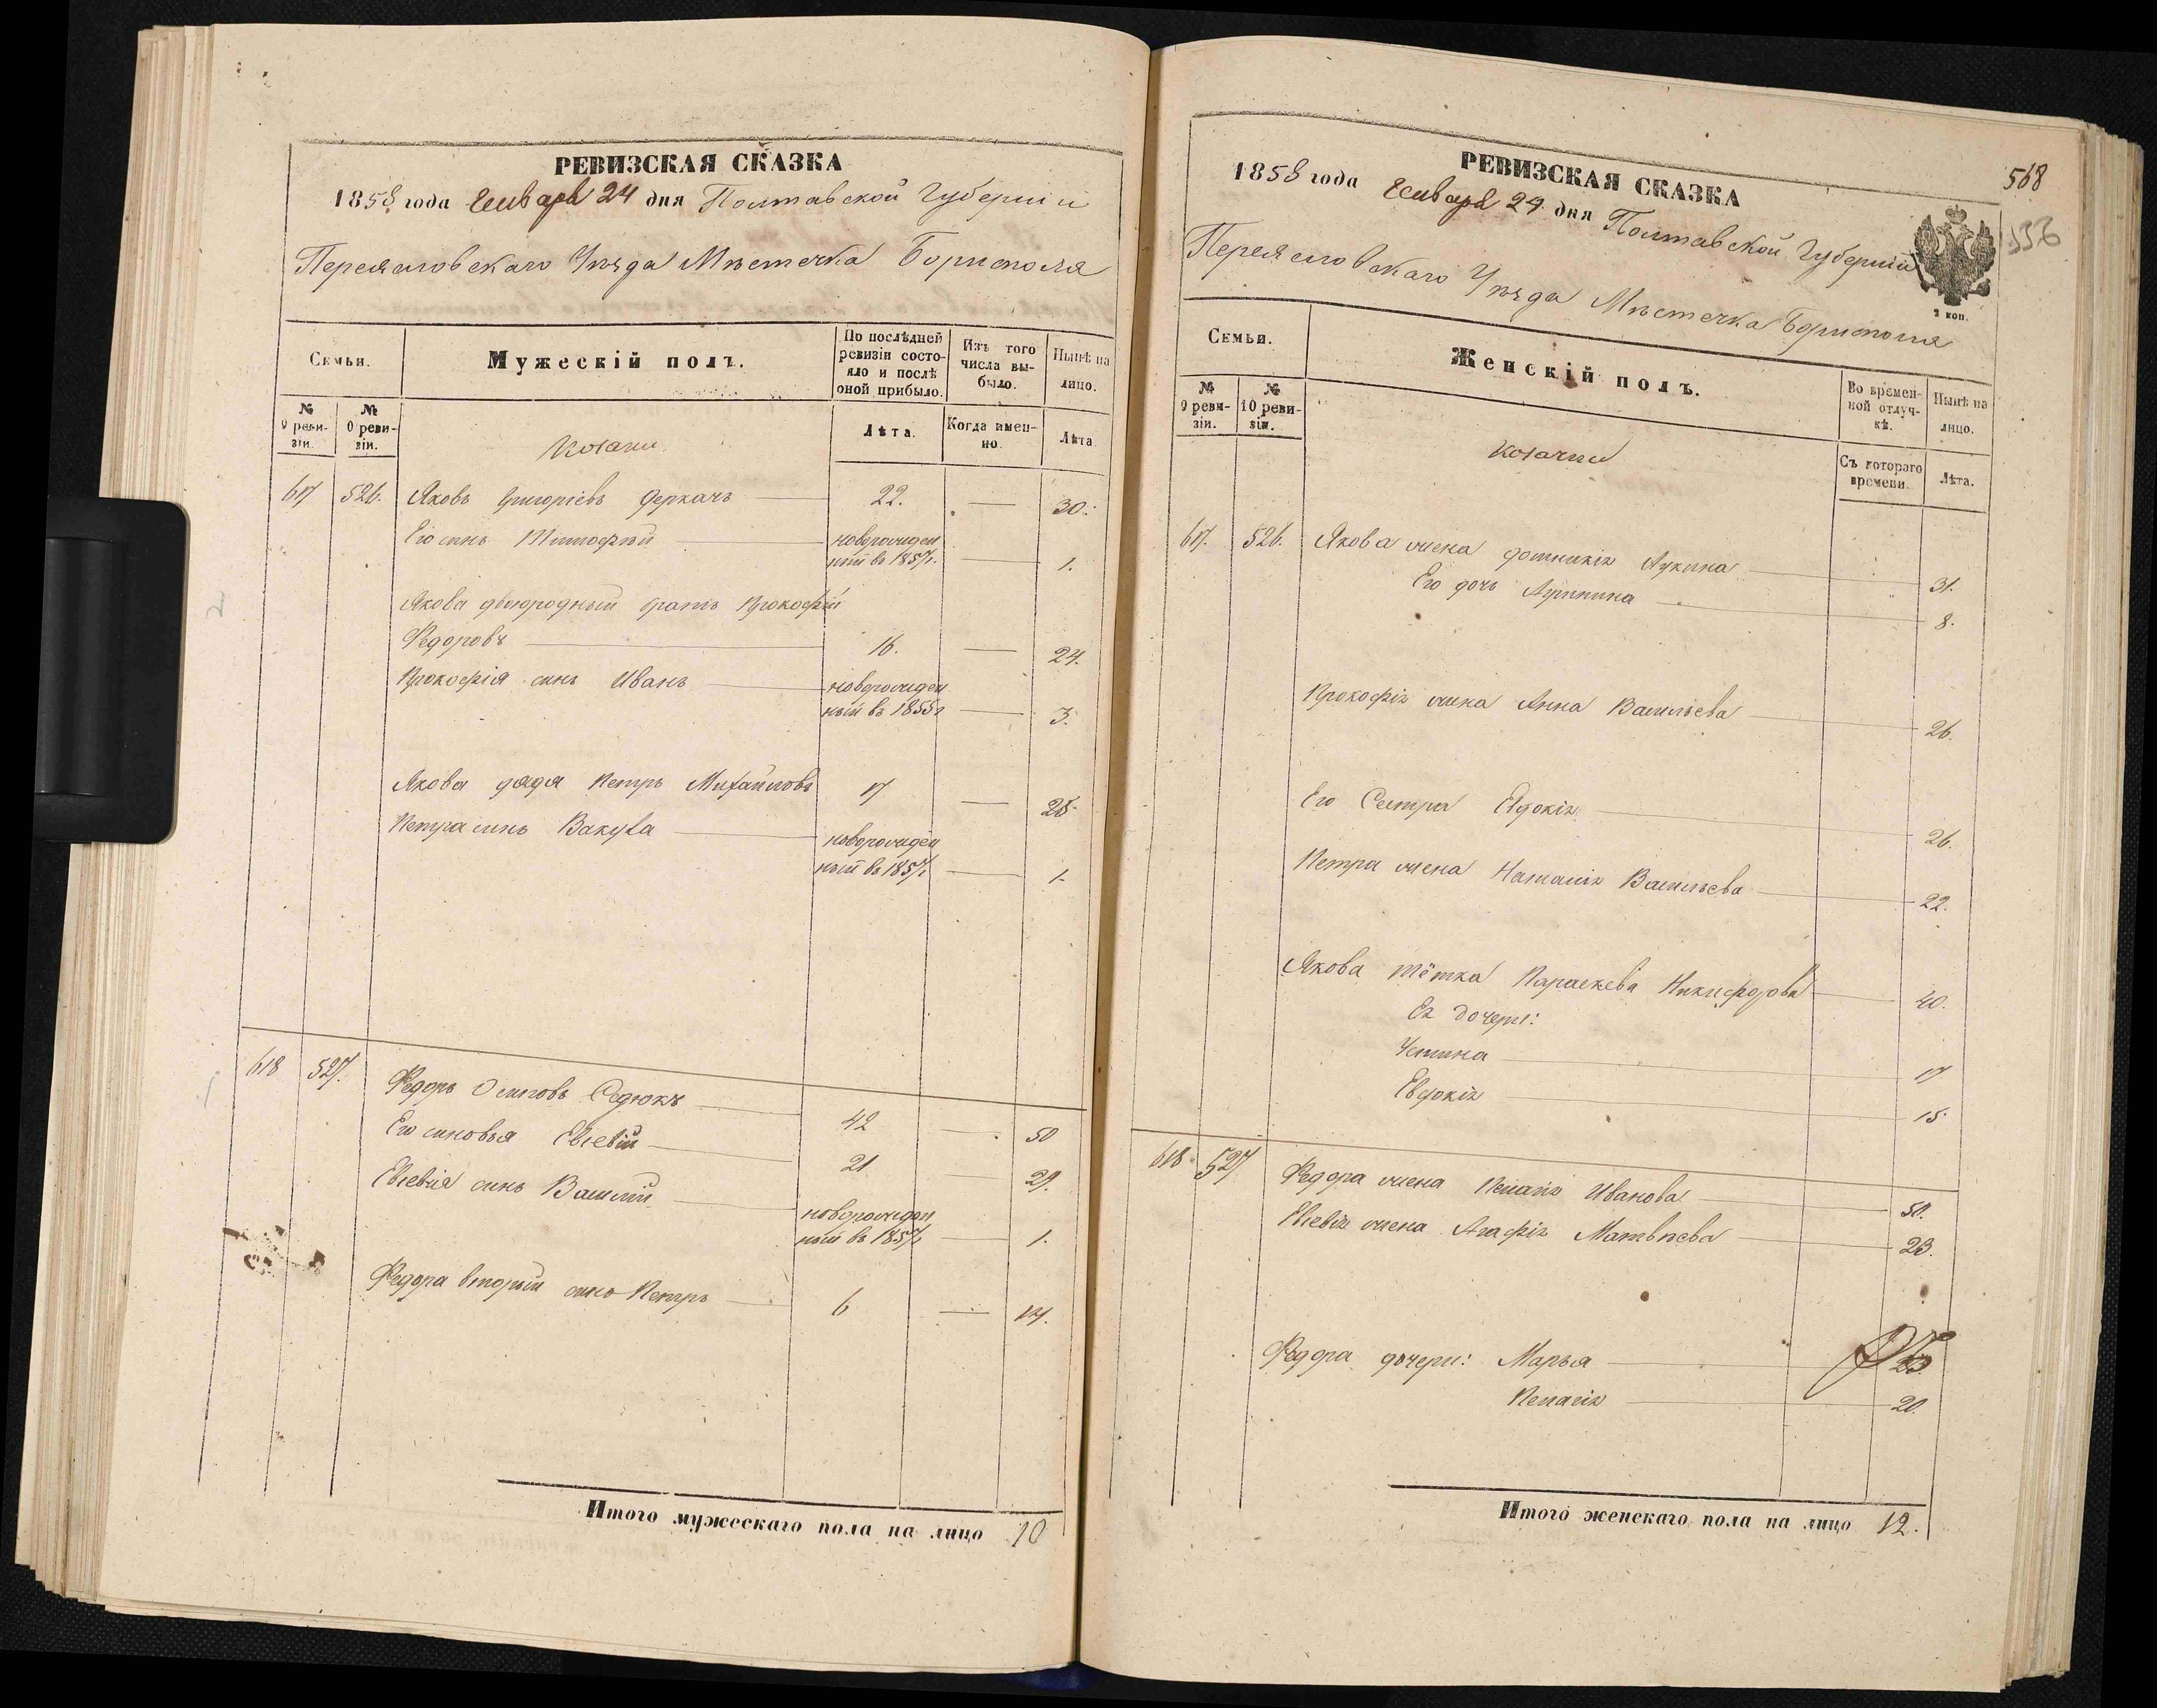 РЕВИЗСКАЯ СКАЗКА
1858 года Генваря 24 дня Полтавской Губерніи
Переяславскаго Уѣзда Мѣстечка Борисполя
Семьи.
Мужескій полъ.
По послѣдней ревизіи состояло и послѣ оной прибыло.
Изъ того числа выбыло.
Нынѣ на лицо.
№ 9 ревизіи.
№ 10 ревизіи.
Козаки
Лѣта.
Когда именно.
Лѣта
617 526. Яковъ Григоріевъ Деркачъ 22. — 30.
Его сынъ Тимофѣй новорожден
ный въ 1857 г. — 1.
Якова двоюродный братъ Прокофій
Федоровъ 16. — 24.
Прокофія сынъ Иванъ новорожден
ный въ 1855 г — 3.
Якова дядя Петръ Михайловъ 17 — 25.
Петра сынъ Вакула новорожден
ный въ 1857 г — 1.
618 527. Федоръ Осиповъ Седюкъ 42 — 50
Его сыновья Евсевій 21 — 29.
Евсевія сынъ Василій новорожден
ный въ 1857 г — 1.
Федора вторый сынъ Петръ 6 — 14.
Итого мужескаго пола на лицо 10
568
РЕВИЗСКАЯ СКАЗКА
1858 года Генваря 24 дня Полтавской Губерніи
Переяславскаго Уѣзда Мѣстечка Борисполя
2 коп.
Семьи.
Женскій полъ.
Во временной отлучкѣ.
Нынѣ на лицо.
№ 9 ревизіи.
№ 10 ревизіи.
Козачки
Съ котораго времени.
Лѣта.
617. 526. Якова жена Домникія Лукина 31.
Его дочь 8.
Прокофія жена Анна Васильева 26.
Его Сестра Евдокія 26.
Петра жена Наталія Васильева 22.
Якова тётка Параскева Никифорова 40.
Ея дочери:
Устина 17
Евдокія 15
618 527 Федора жена Пелагія Иванова 50.
Евсевія жена Агафія Матвѣева 23.
Федора дочери: Марья 23
Пелагія 20.
Итого женскаго пола на лицо 12.